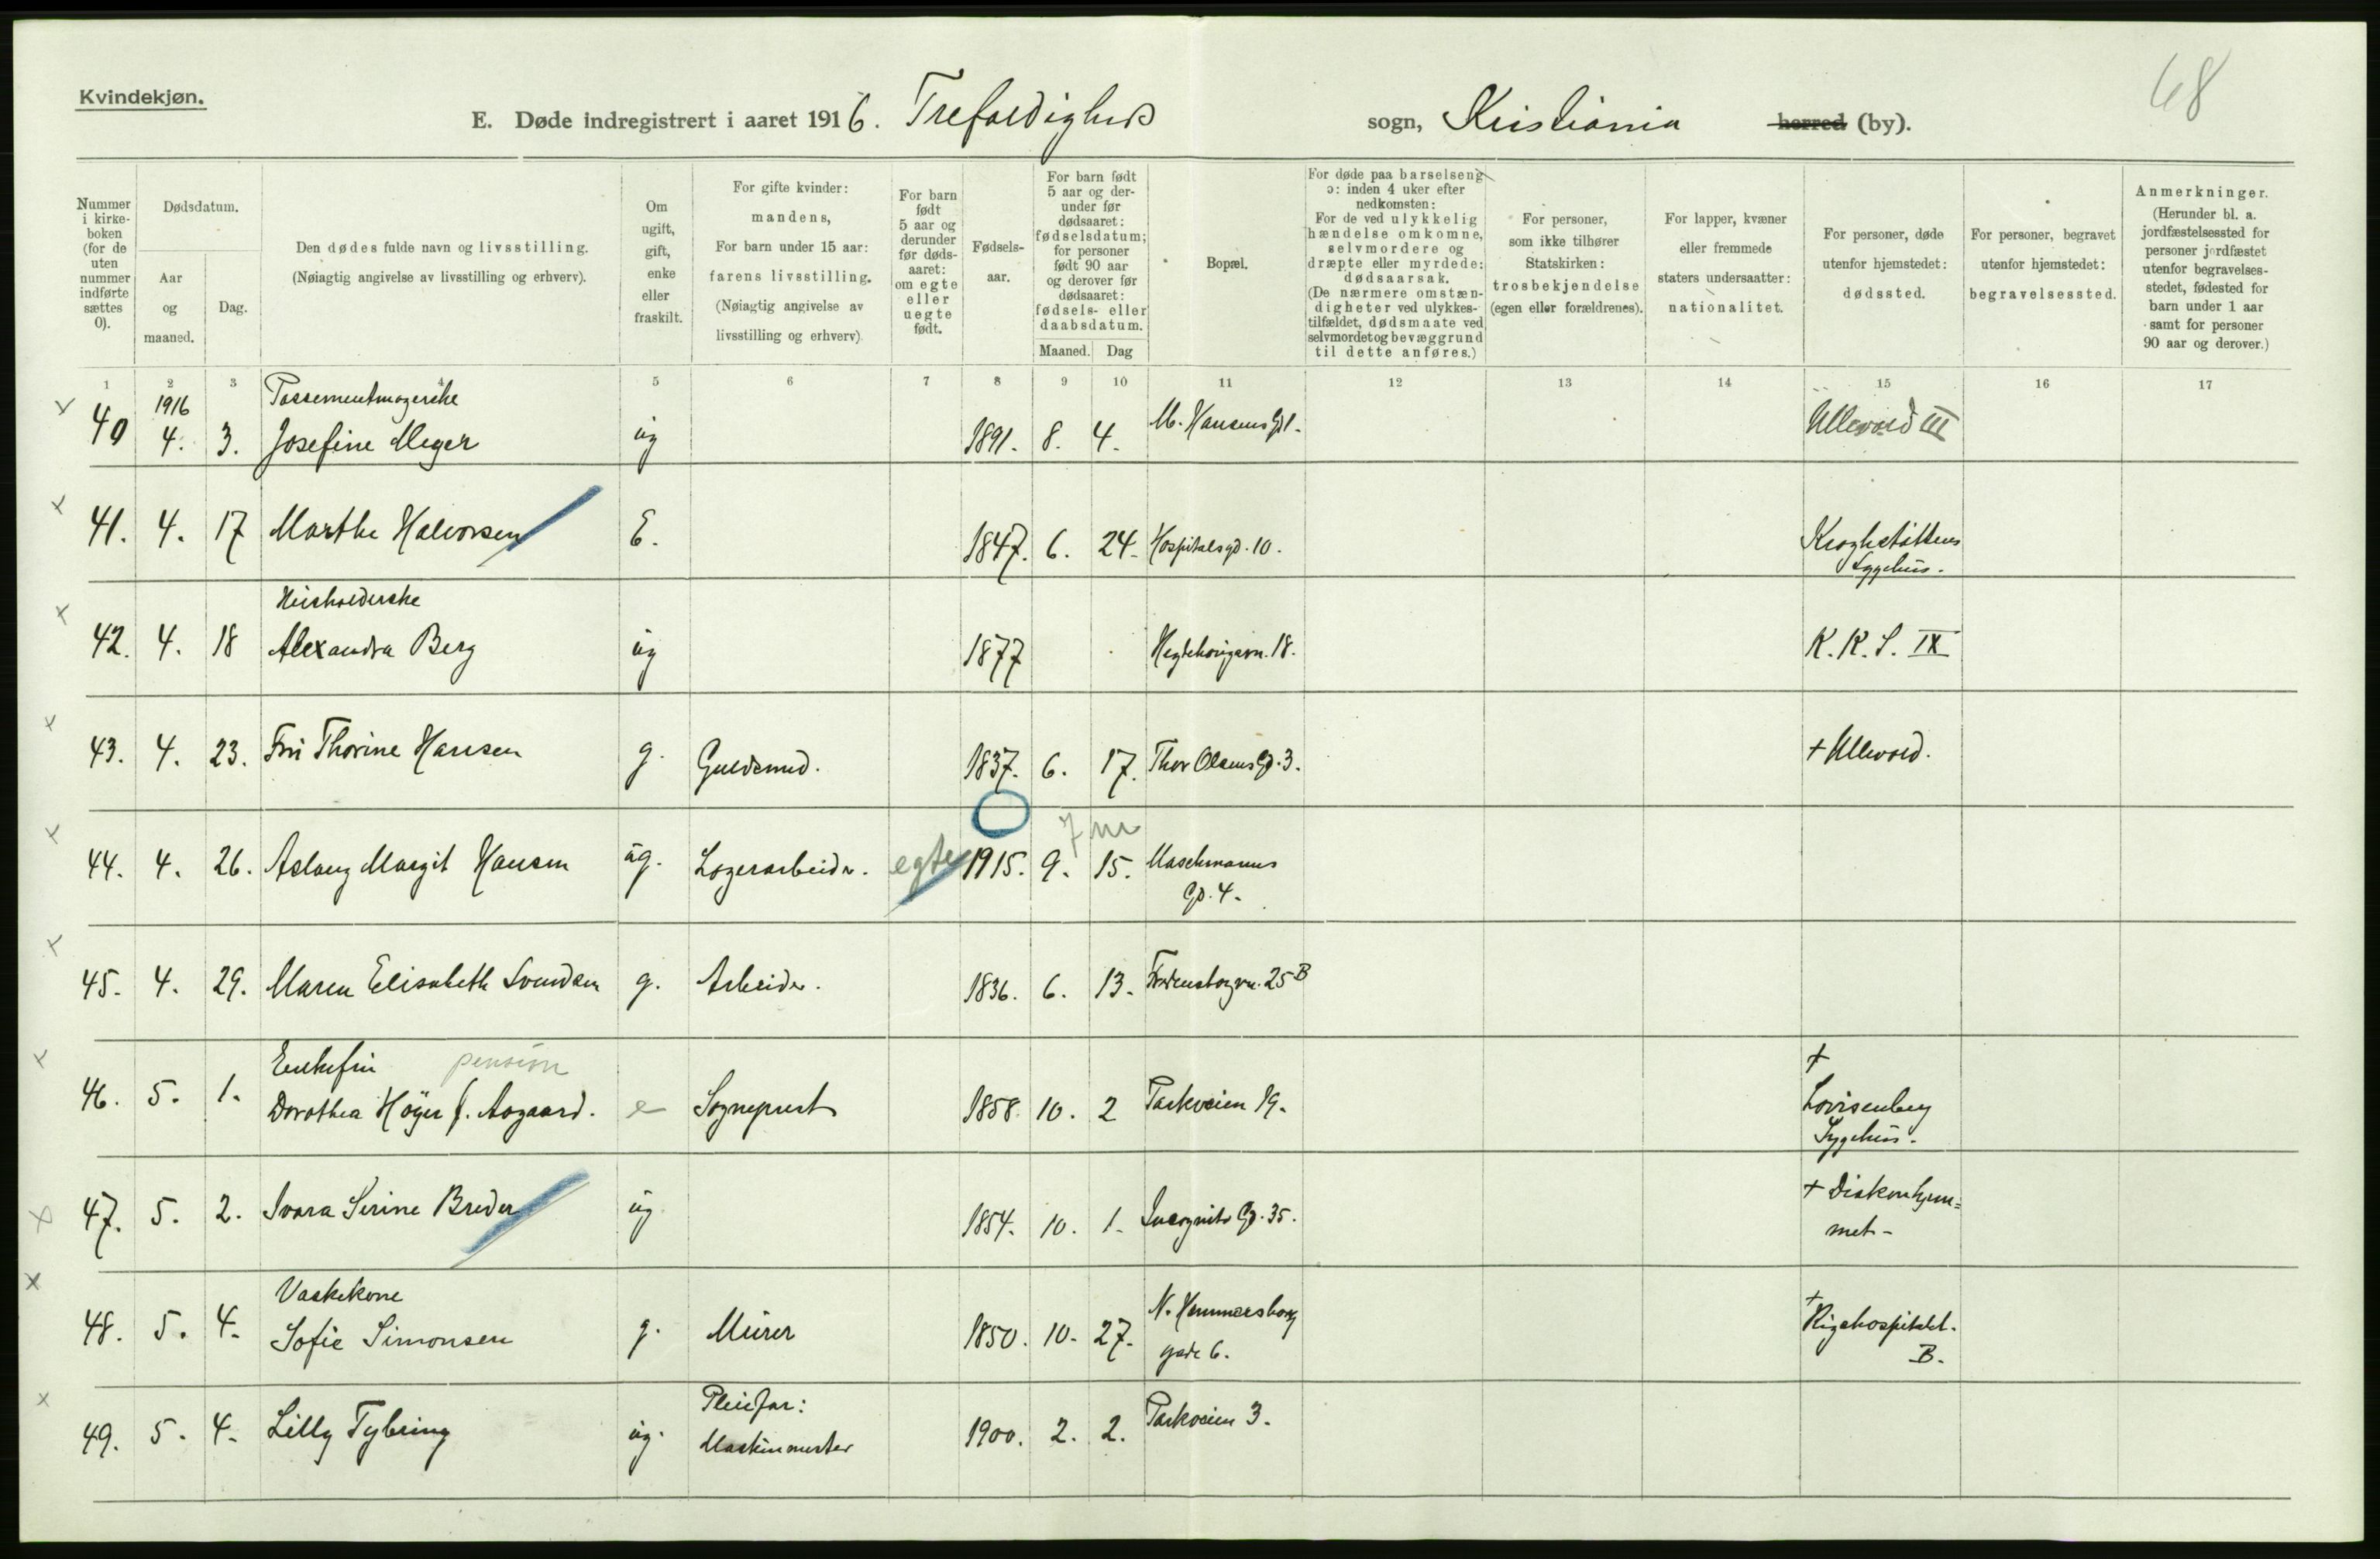 Kvindekjøn.
68
E. Døde indregistrert i aaret 1916. Trefoldigheds sogn, Kristiania herred (by).
Nummer i kirkeboken (for de uten nummer indførte sættes 0).
Dødsdatum.
Aar og maaned.
Dag.
Den dødes fulde navn og livsstilling.
(Nøiagtig angivelse av livsstilling og erhverv).
Om ugift, gift, enke eller fraskilt.
For gifte kvinder: mandens,
For barn under 15 aar: farens livsstilling.
(Nøiagtig angivelse av livsstilling og erhverv)
For barn født 5 aar og derunder før dødsaaret: om egte eller uegte født.
Fødselsaar.
For barn født 5 aar og derunder før dødsaaret: fødselsdatum; for personer født 90 aar og derover før dødsaaret: fødsels- eller daabsdatum.
Maaned. Dag
Bopæl.
For døde paa barselseng ɔ: inden 4 uker efter nedkomsten:
For de ved ulykkelig hændelse omkomne, selvmordere og dræpte eller myrdede: dødsaarsak.
(De nærmere omstændigheter ved ulykkestilfældet, dødsmaate ved selvmordet og bevæggrund til dette anføres.)
For personer, som ikke tilhører Statskirken: trosbekjendelse (egen eller forældrenes).
For lapper, kvæner eller fremmede staters undersaatter: nationalitet.
For personer, døde utenfor hjemstedet: dødssted.
For personer, begravet utenfor hjemstedet: begravelsessted.
Anmerkninger.
(Herunder bl. a. jordfæstelsessted for personer jordfæstet utenfor begravelsesstedet, fødested for barn under 1 aar samt for personer 90 aar og derover.)
1 2 3 4 5 6 7 8 9 10 11 12 13 14 15 16 17
x 40 1916 4. 3. Possementmagerske
Josefine Meyer ug 1891. 8. 4. M. Hansens Gd 1. Ullevold III
x 41. 4. 17 Marthe Halvorsen E. 1847. 6. 24. Hospitalsgd. 10. Kroghstøttens
Sygehus.
x 42. 4. 18 Husholderske
Alexandra Berg ug 1877 Hegdehaugsvn. 18. K. K. S. IX
x 43. 4. 23. Fru Thorine Hansen g. Guldsmed. 1837. 6. 17. Thor Olsens Gd. 3. + Ullevold.
7 m
x 44. 4. 26. Aslaug Margit Hansen ug. Lagerarbeider. egte 1915. 9. 15. Maschmanns
Gd. 4.
x 45. 4. 29. Maren Elisabeth Svendsen g. Arbeider. 1836. 6. 13. Fredensborgvn. 25 B
x 46. 5. 1. Enkefru pension
Dorothea Höyer f. Aagaard. e Sogneprest 1858. 10. 2 Parkveien 19. +
Lovisenberg
Sygehus.
x 47. 5. 2. Svara Serine Breder ug 1854. 10. 1. Incognito Gd. 35. + Diakonhjem=
met-
x 48. 5. 4. Vaskekone
Sofie Simonsen g. Murer 1850. 10. 27. N. Hammersborg
gade 6. + Rigshospitalet.
B.
x 49. 5. 4. Lilly Tybring ug. Pleiefar:
Maskinmester 1900. 2. 2. Parkveien 3.